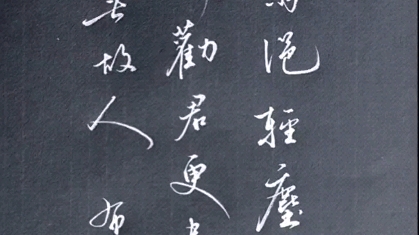 浥輕塵
勸君更
故人